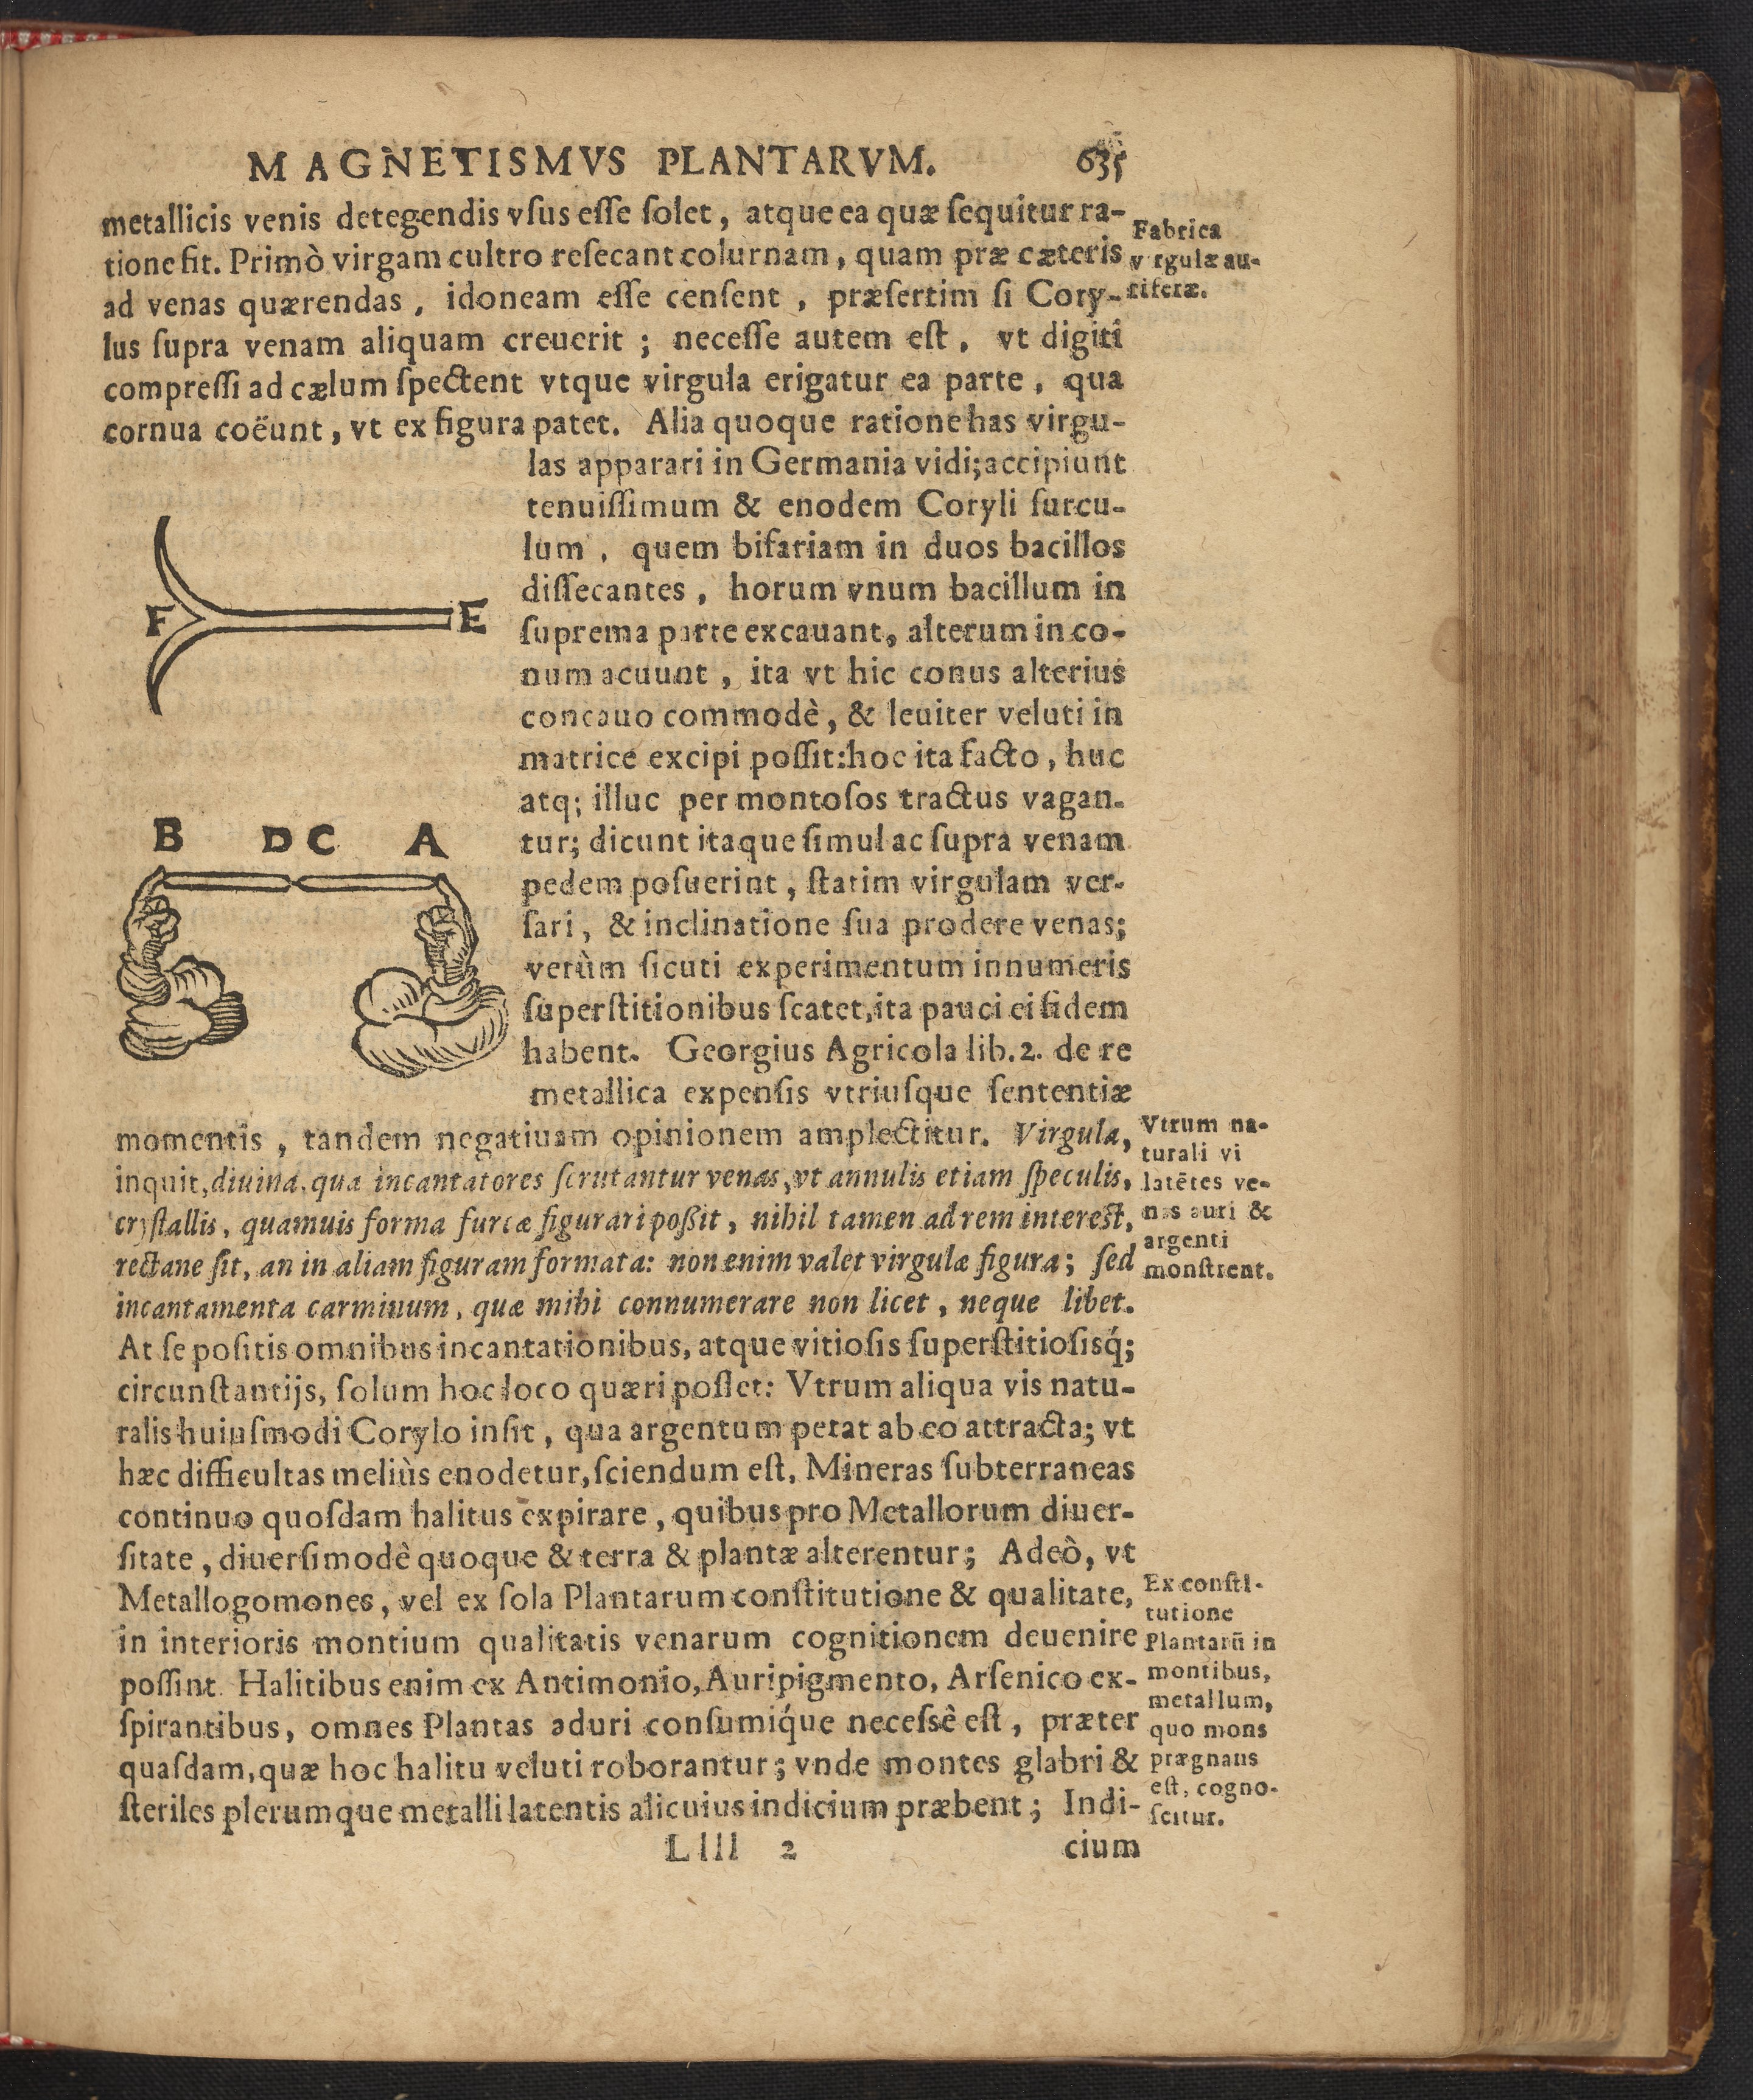 MAGNETISMVS PLANTARVM. 635
metallicis venis detegendis vſus eſſe ſolet, atque ea quæ ſequitur ra-
tione fit. Primò virgam cultro reſecant colurnam, quam præ cæteris
ad venas quærendas, idoneam eſſe cenſent, præſertim ſi Cory-
lus ſupra venam aliquam creuerit; neceſſe autem eſt, vt digiti
compreſſi ad cælum ſpectent vtque virgula erigatur ea parte, qua
cornua coëunt, vt ex figura patet. Alia quoque ratione has virgu-
Fabrica
virgulæ au-
riferæ.
las apparari in Germania vidi; accipiunt
tenuiſſimum & enodem Coryli ſurcu-
lum, quem bifariam in duos bacillos
diſſecantes, horum vnum bacillum in
ſuprema parte excauant, alterum in co-
num acuunt, ita vt hic conus alterius
concauo commodè, & leuiter veluti in
matrice excipi poſſit: hoc ita facto, huc
atq; illuc per montoſos tractus vagan-
tur; dicunt itaque ſimul ac ſupra venam
pedem poſuerint, ſtatim virgulam ver-
ſari, & inclinatione ſua prodere venas;
verùm ſicuti experimentum innumeris
ſuperſtitionibus ſcatet, ita pauci ei fidem
habent. Georgius Agricola lib. 2. de re
metallica expenſis vtriuſque ſententiæ
F E
B D C A
momentis, tandem negatiuam opinionem amplectitur. Virgula,
inquit, diuina, qua incantatores ſcrutantur venas, vt annulis etiam ſpeculis,
cryſtallis, quamuis forma furcæ figurari poßit, nihil tamen ad rem intereſt,
rectane ſit, an in aliam figuram formata: non enim valet virgulæ figura; ſed
incantamenta carminum, quæ mihi connumerare non licet, neque libet.
Vtrum na-
turali vi
latētes ve-
nas auri &
argenti
monſtrent.
At ſepoſitis omnibus incantationibus, atque vitioſis ſuperſtitioſisq́;
circunſtantijs, ſolum hoc loco quæri poſſet: Vtrum aliqua vis natu-
ralis huiuſmodi Corylo inſit, qua argentum petat ab eo attracta; vt
hæc difficultas meliùs enodetur, ſciendum eſt, Mineras ſubterraneas
continuo quoſdam halitus expirare, quibus pro Metallorum diuer-
ſitate, diuerſimodè quoque & terra & plantæ alterentur; Adeò, vt
Metallogomones, vel ex ſola Plantarum conſtitutione & qualitate,
in interioris montium qualitatis venarum cognitionem deuenire
poſſint. Halitibus enim ex Antimonio, Auripigmento, Arſenico ex-
ſpirantibus, omnes Plantas aduri conſumiq́ue neceſsè eſt, præter
quaſdam, quæ hoc halitu veluti roborantur; vnde montes glabri &
ſteriles plerumque metalli latentis alicuius indicium præbent; Indi-
Ex conſti-
tutione
Plantarũ in
montibus,
metallum,
quo mons
prægnans
eſt, cogno-
ſcitur.
Llll 2 cium